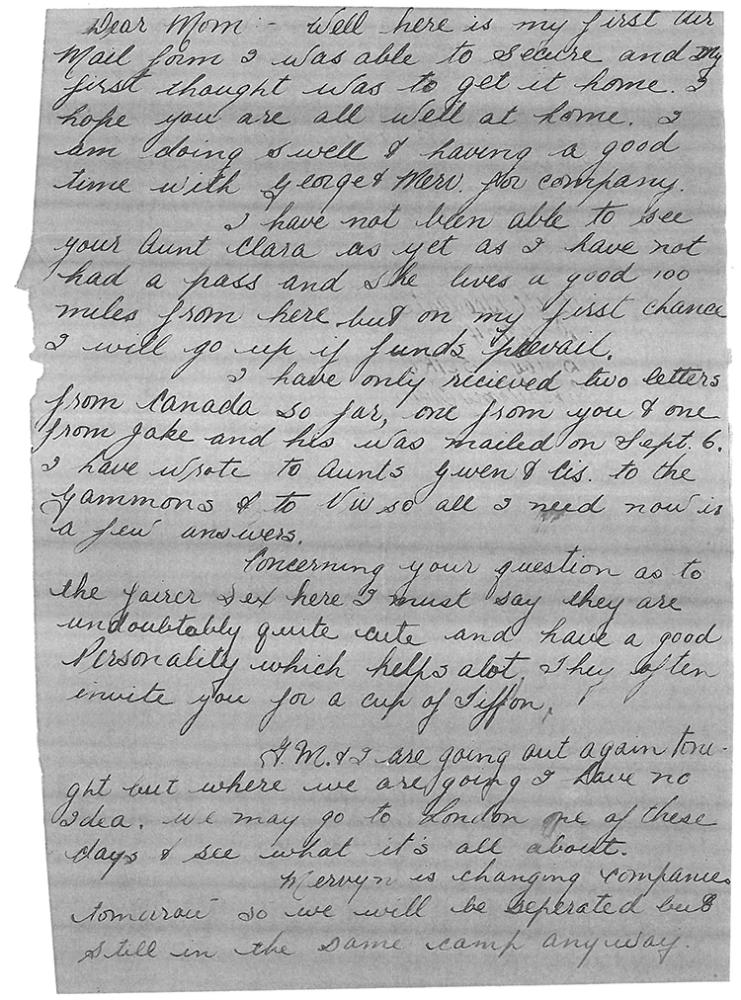 Dear Mom:- Well here is my first air
Mail form I was able to secure and my
first thought was to get it home. I
hope you are all well at home. I
am doing swell & having a good
time with George & Merv. for company.
I have not been able to see
your Aunt Clara as yet as I have not
had a pass and she lives a good 100
miles from here but on my first chance
I will go up if funds prevail.
I have only recieved two letters
from Canada so far, one from you & one
from Jake and his was mailed on Sept. 6.
I have wrote to Aunts Gwen & Cis. to the
Gammons & to so all I need now is
a few answers.
Concerning your question as to
the fairer sex here I must say they are
undoubtably quite cute and have a good
Personality which helps alot, They often
invite you for a cup of Tiffon,
M. & I are going out again toni-
ght but where we are going I have no
Idea. we may go to London one of these
days & see what it's all about.
Mervyn is changing companies
tomorrow so we will be seperated but
still in the same camp anyway.